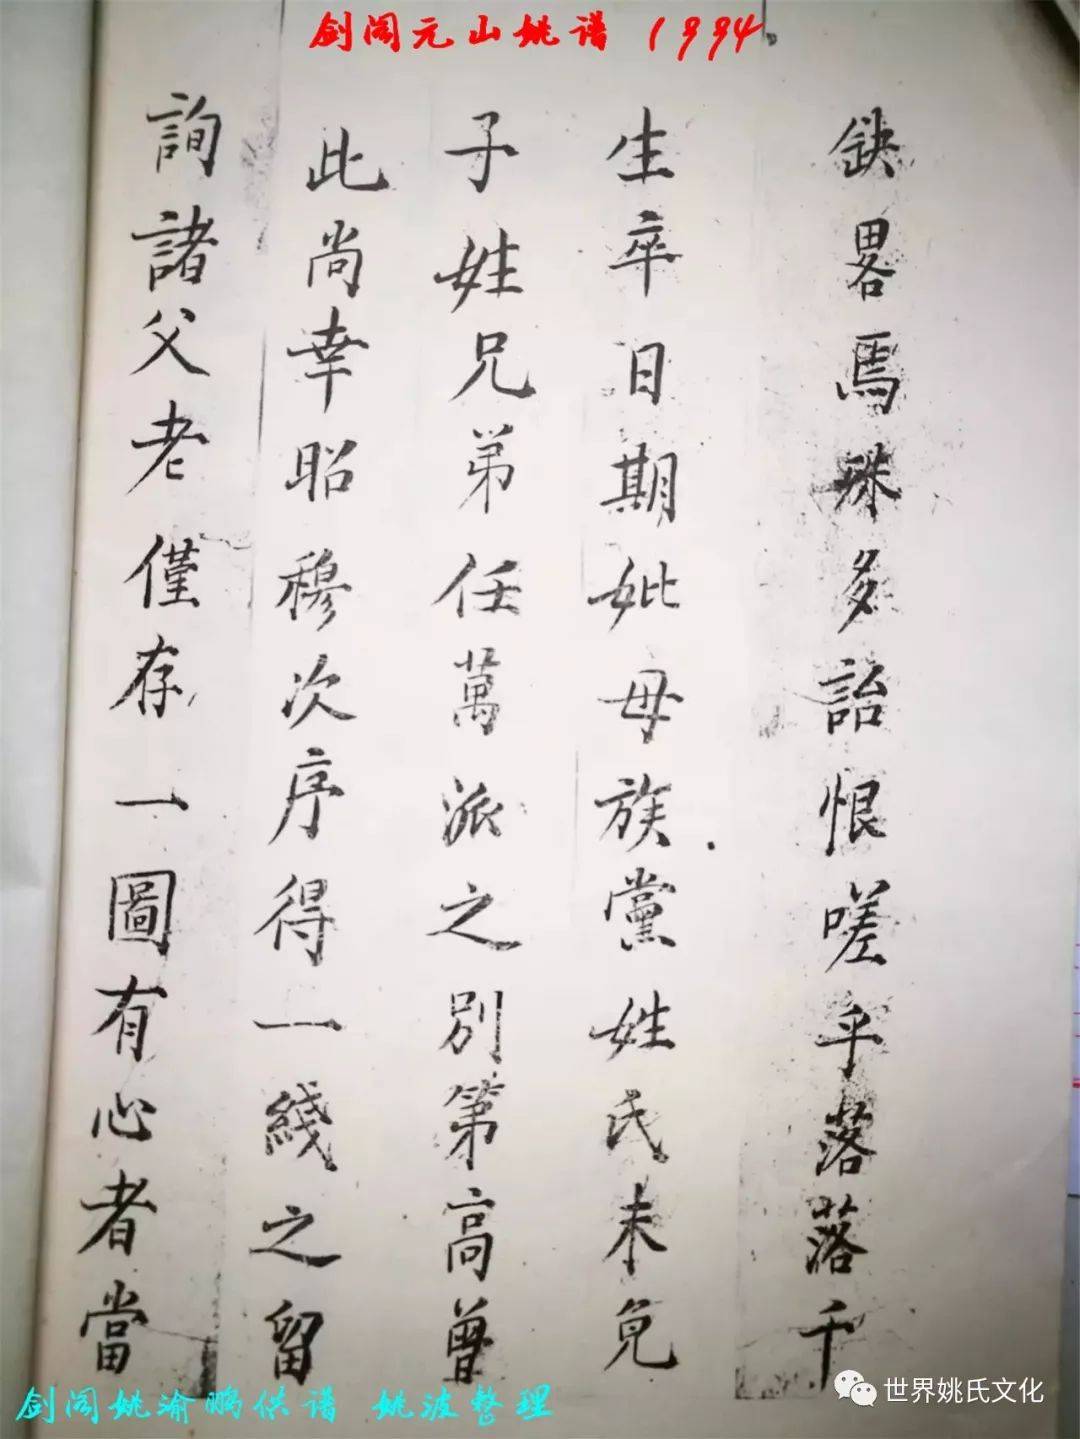 剑阁元山姚谱 1994.
缺畧焉殊多詒恨嗟乎落落千
生卒日期妣母族黨姓氏未免
子姓兄弟任萬派之别第高曾
此尚幸昭穆次序得一綫之留
詢諸父老僅存一圖有心者當
剑阁姚渝鹏供谱 姚波整理
世界姚氏文化